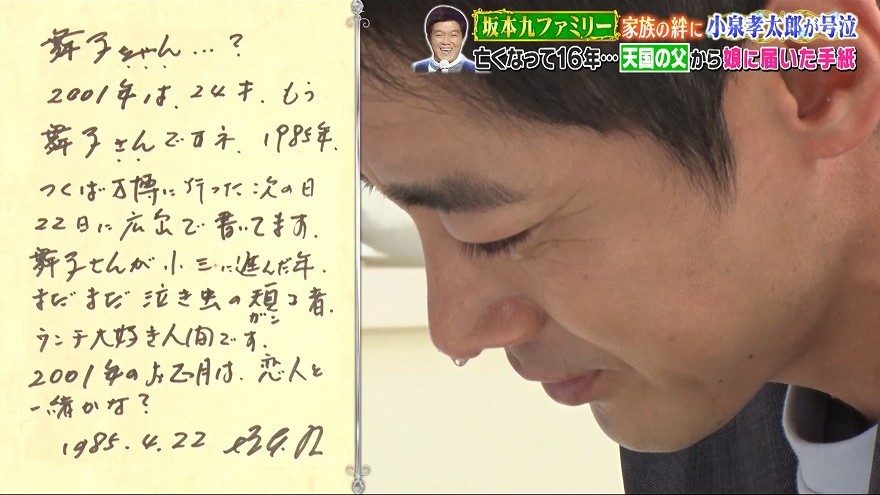 坂本九ファミリー 家族の絆に 小泉孝太郎が号泣
亡くなって16年… 天国の父から娘に届いた手紙
舞子ちゃん…?
2001年は、24才、もう
舞子さんですネ、1985年、
つくば万博に行った次の日
22日に広島で書いてます。
舞子さんが小三に進んだ年、
まだまだ泣き虫の頑コ者、
ガン
ランチ大好き人間です。
2001年のお正月は、恋人と
一緒かな?
1985.4.22